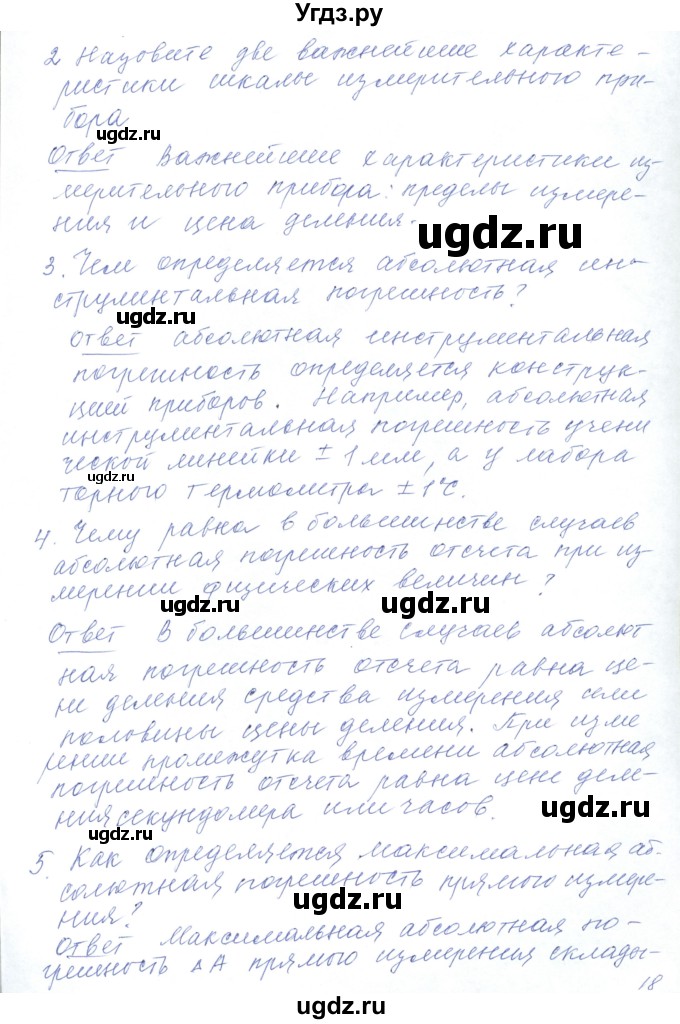 Угдз.ру
2 Назовите две важнейшие характе-
ристики шкалы измерительного при-
бора
ugdz.ru
Ответ Важнейшие характеристики из-
мерительного прибора: пределы измере-
ния и цена деления.
ugdz.ru
ugdz.ru
3. Чем определяется абсолютная ин-
струментальная погрешность?
ugdz.ru
Ответ абсолютная инструментальная
погрешность определяется конструк-
цией приборов. Например, абсолютная
инструментальная погрешность учени
ческой линейки ± 1 мм, а у лабора
торного термометра ± 1°С.
ugdz.ru
4. Чему равна в большинстве случаев
абсолютная погрешность отсчета при из-
мерении физических величин?
ugdz.ru
ugdz.ru
Ответ В большинстве случаев абсолют
ная погрешность отсчета равна це-
ни деления средства измерения или
половины цены деления. При изме
рении промежутка времени абсолютная
погрешность отсчета равна цене деле-
ния секундомера или часов.
ugdz.ru
ugdz.ru
5. Как определяется максимальная аб-
солютная погрешность прямого измере-
ния?
ugdz.ru
Ответ Максимальная абсолютная по-
грешность ΔА прямого измерения склады-
18
ugdz.ru